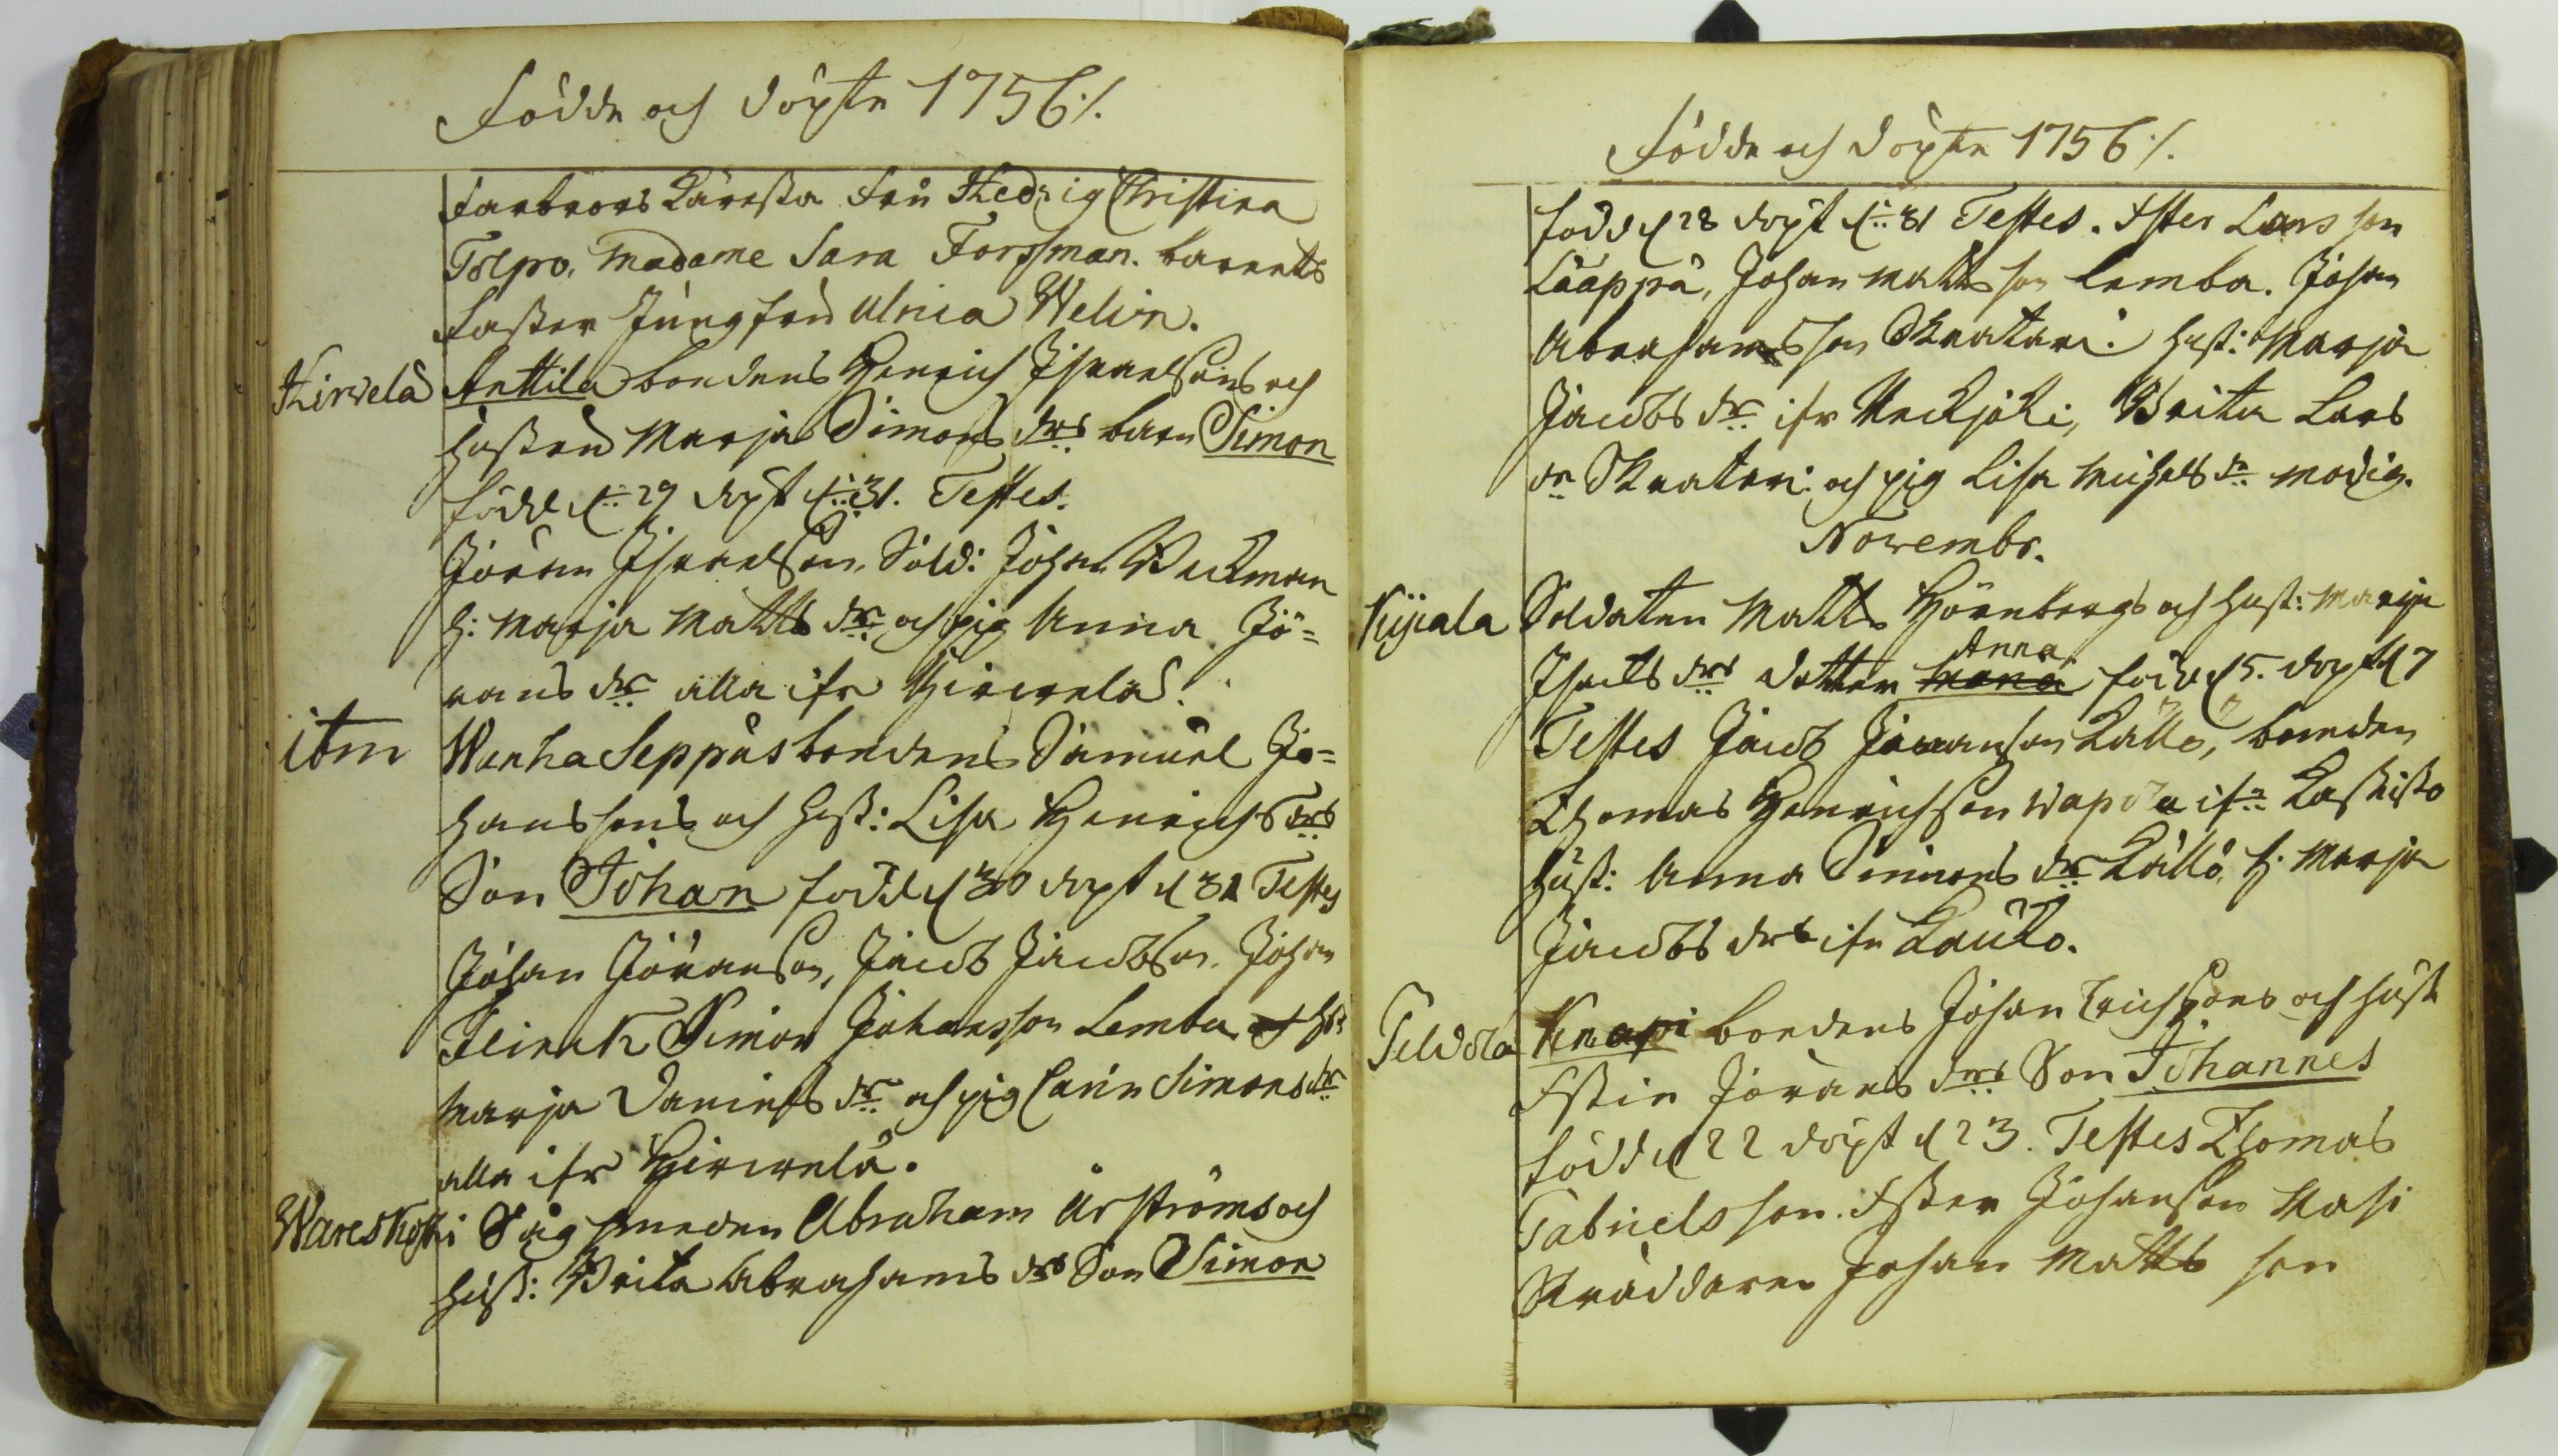 Födde och döpte 1756 ·/.
Farbrors Käresta Fru Hedvig Christina
Polpro, Madame Sara Forssman. barnets
Faster Jungfru Ulrica Welin.
Hirvelä Anttila bondens Henrich Israelssons och
hustrus Marja Simons drs barn Simon
född d: 29 döpt d: 31. Testes.
Jöran Israelsson, Sold: Johan Weckman
h: Marja Matts dr och pig Anna Jö=
rans dr alla ifr Hirwelä.
itm Wanha Seppäs bondens Samuel Jo=
hanssons och hust: Lisa Henrichs drs
Son Johan född d 30 döpt d 31 Testes
Johan Jöransson, Jacob Jacobsson. Johan
Flinck Simon Johansson Lemba
Marja Daniels dr och pig Carin Simons dr
alla ifr Hirwelä.
Wareskoski Sågsmeden Abraham Årströms och
hust: Brita Abrahams drs Son Simon
Födde och döpte 1756 ·/.
född d 28 döpt d: 31 Testes. Ester Larsson
Lääppä, Johan Mattsson Lemba. Johan
Abrahamsson Skratari. hust: Marja
Jacobs dr ifr Neckjoki, Brita Lars
dr Skratari och pig Lisa Michels dr Modig.
Novembr.
Kyiala Soldaten Matts Hörnbergs och hust: Maria
Anna
Isacs drs dotter Maria född d 5. döpt d 7
Testes Jacob Jöransson Källö, bonden
Thomas Henrichsson Wapola ifr Kaskisto
hust: Anna Simons dr Källö, h. Marja
Jacobs drs ifr Kauko.
Peldola Knapi bondens Johan Erichssons och hust
Estin Jörans drs Son Johannes
född d 22 döpt d 23. Testes Thomas
Gabrielsson. Ester Johansson Masi
Skräddaren Johan Matts son